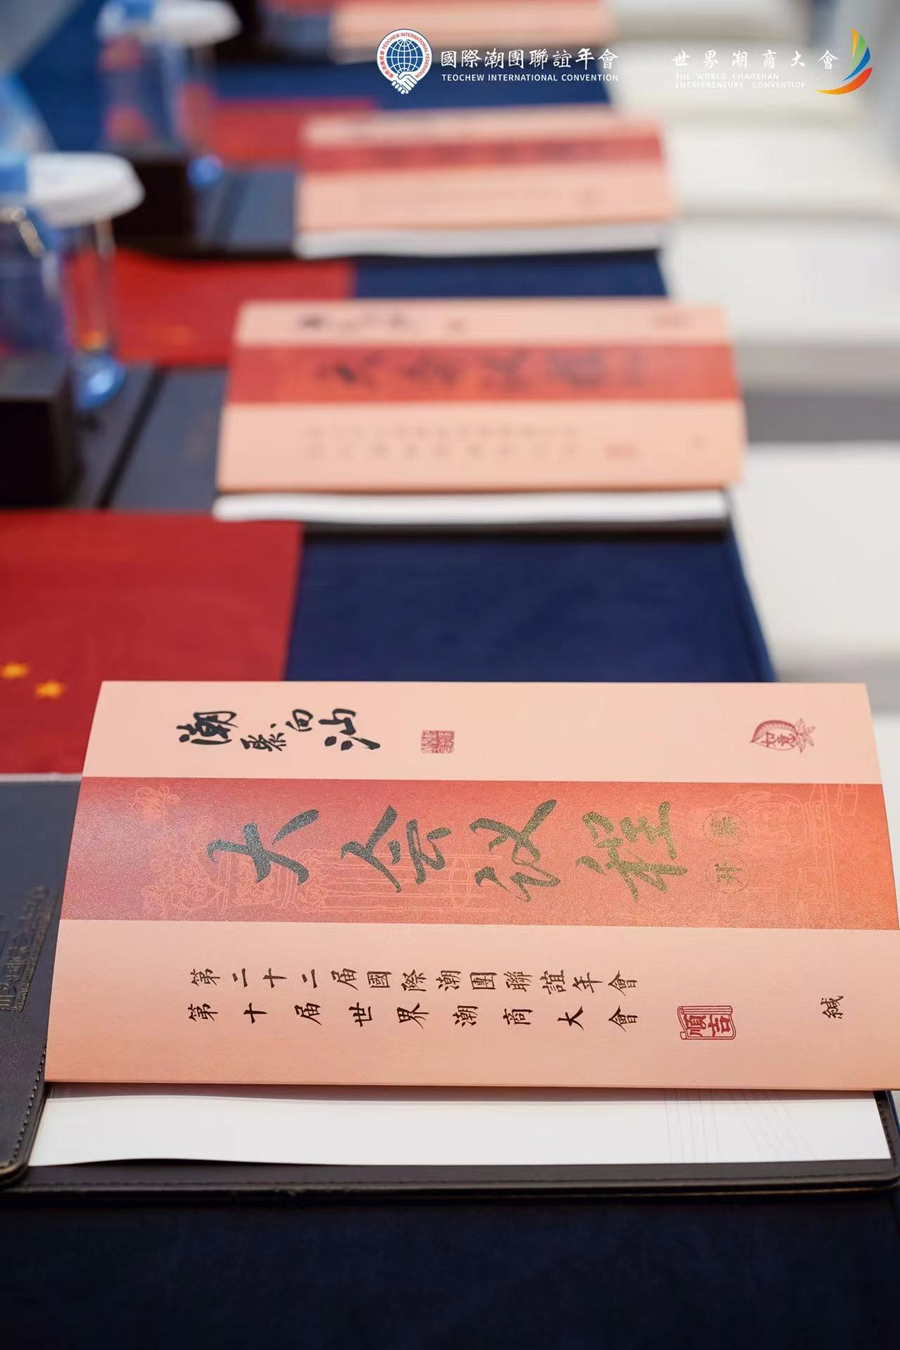 國際潮團聯誼年會
TEOCHEW INTERNATIONAL CONVENTION
世界潮商大會
THE WORLD CHAOSHAN
ENTREPRENEURS' CONVENTION
潮聚向汕
大会议程
第二十二届國際潮團聯誼年會
第十届世界潮商大會
順吉
緘